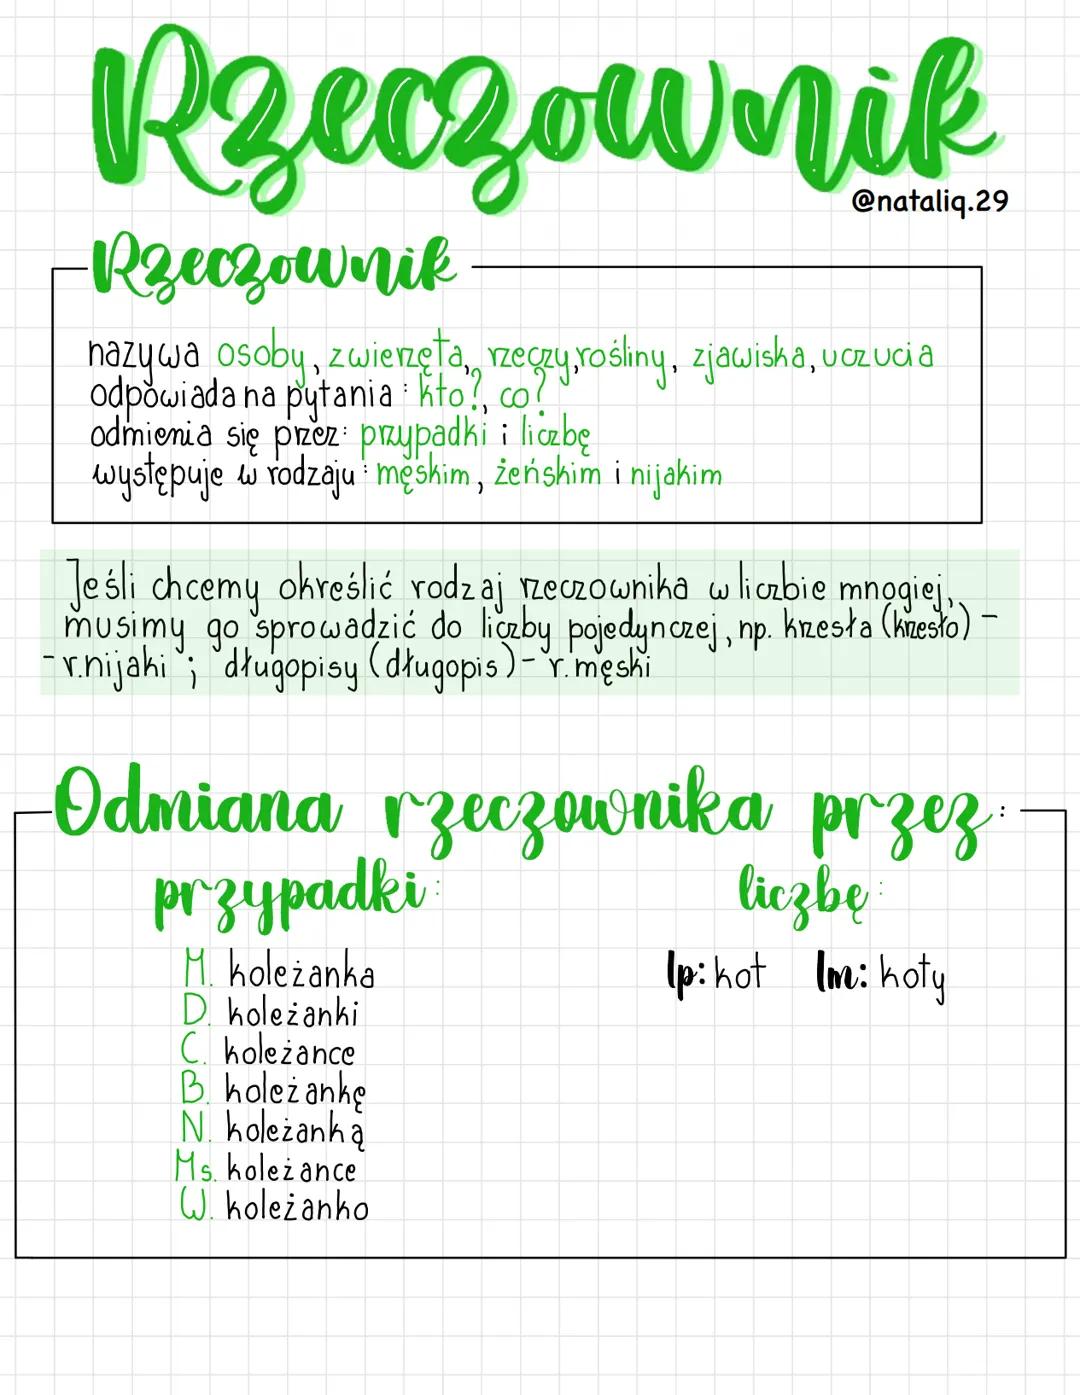 Rzeczownik
@nataliq.29
Rzeczownik
nazywa osoby, zwierzęta, rzeczy, rośliny, zjawiska, uczucia
odpowiada na pytania: kto?, co?
odmienia się przez: przypadki i liczbę
występuje w rodzaju: męskim, żeńskim i nijakim
Jeśli chcemy określić rodzaj rzeczownika w liczbie mnogiej,
musimy go sprowadzić do liczby pojedynczej, np. krzesła (krzesło) -
- r.nijaki ; długopisy (długopis) - r. męski
Odmiana rzeczownika przez:
przypadki:
M. koleżanka
D. koleżanki
C. koleżance
B. koleżankę
N. koleżanką
Ms. koleżance
W. koleżanko
liczbę:
lp: kot lm: koty